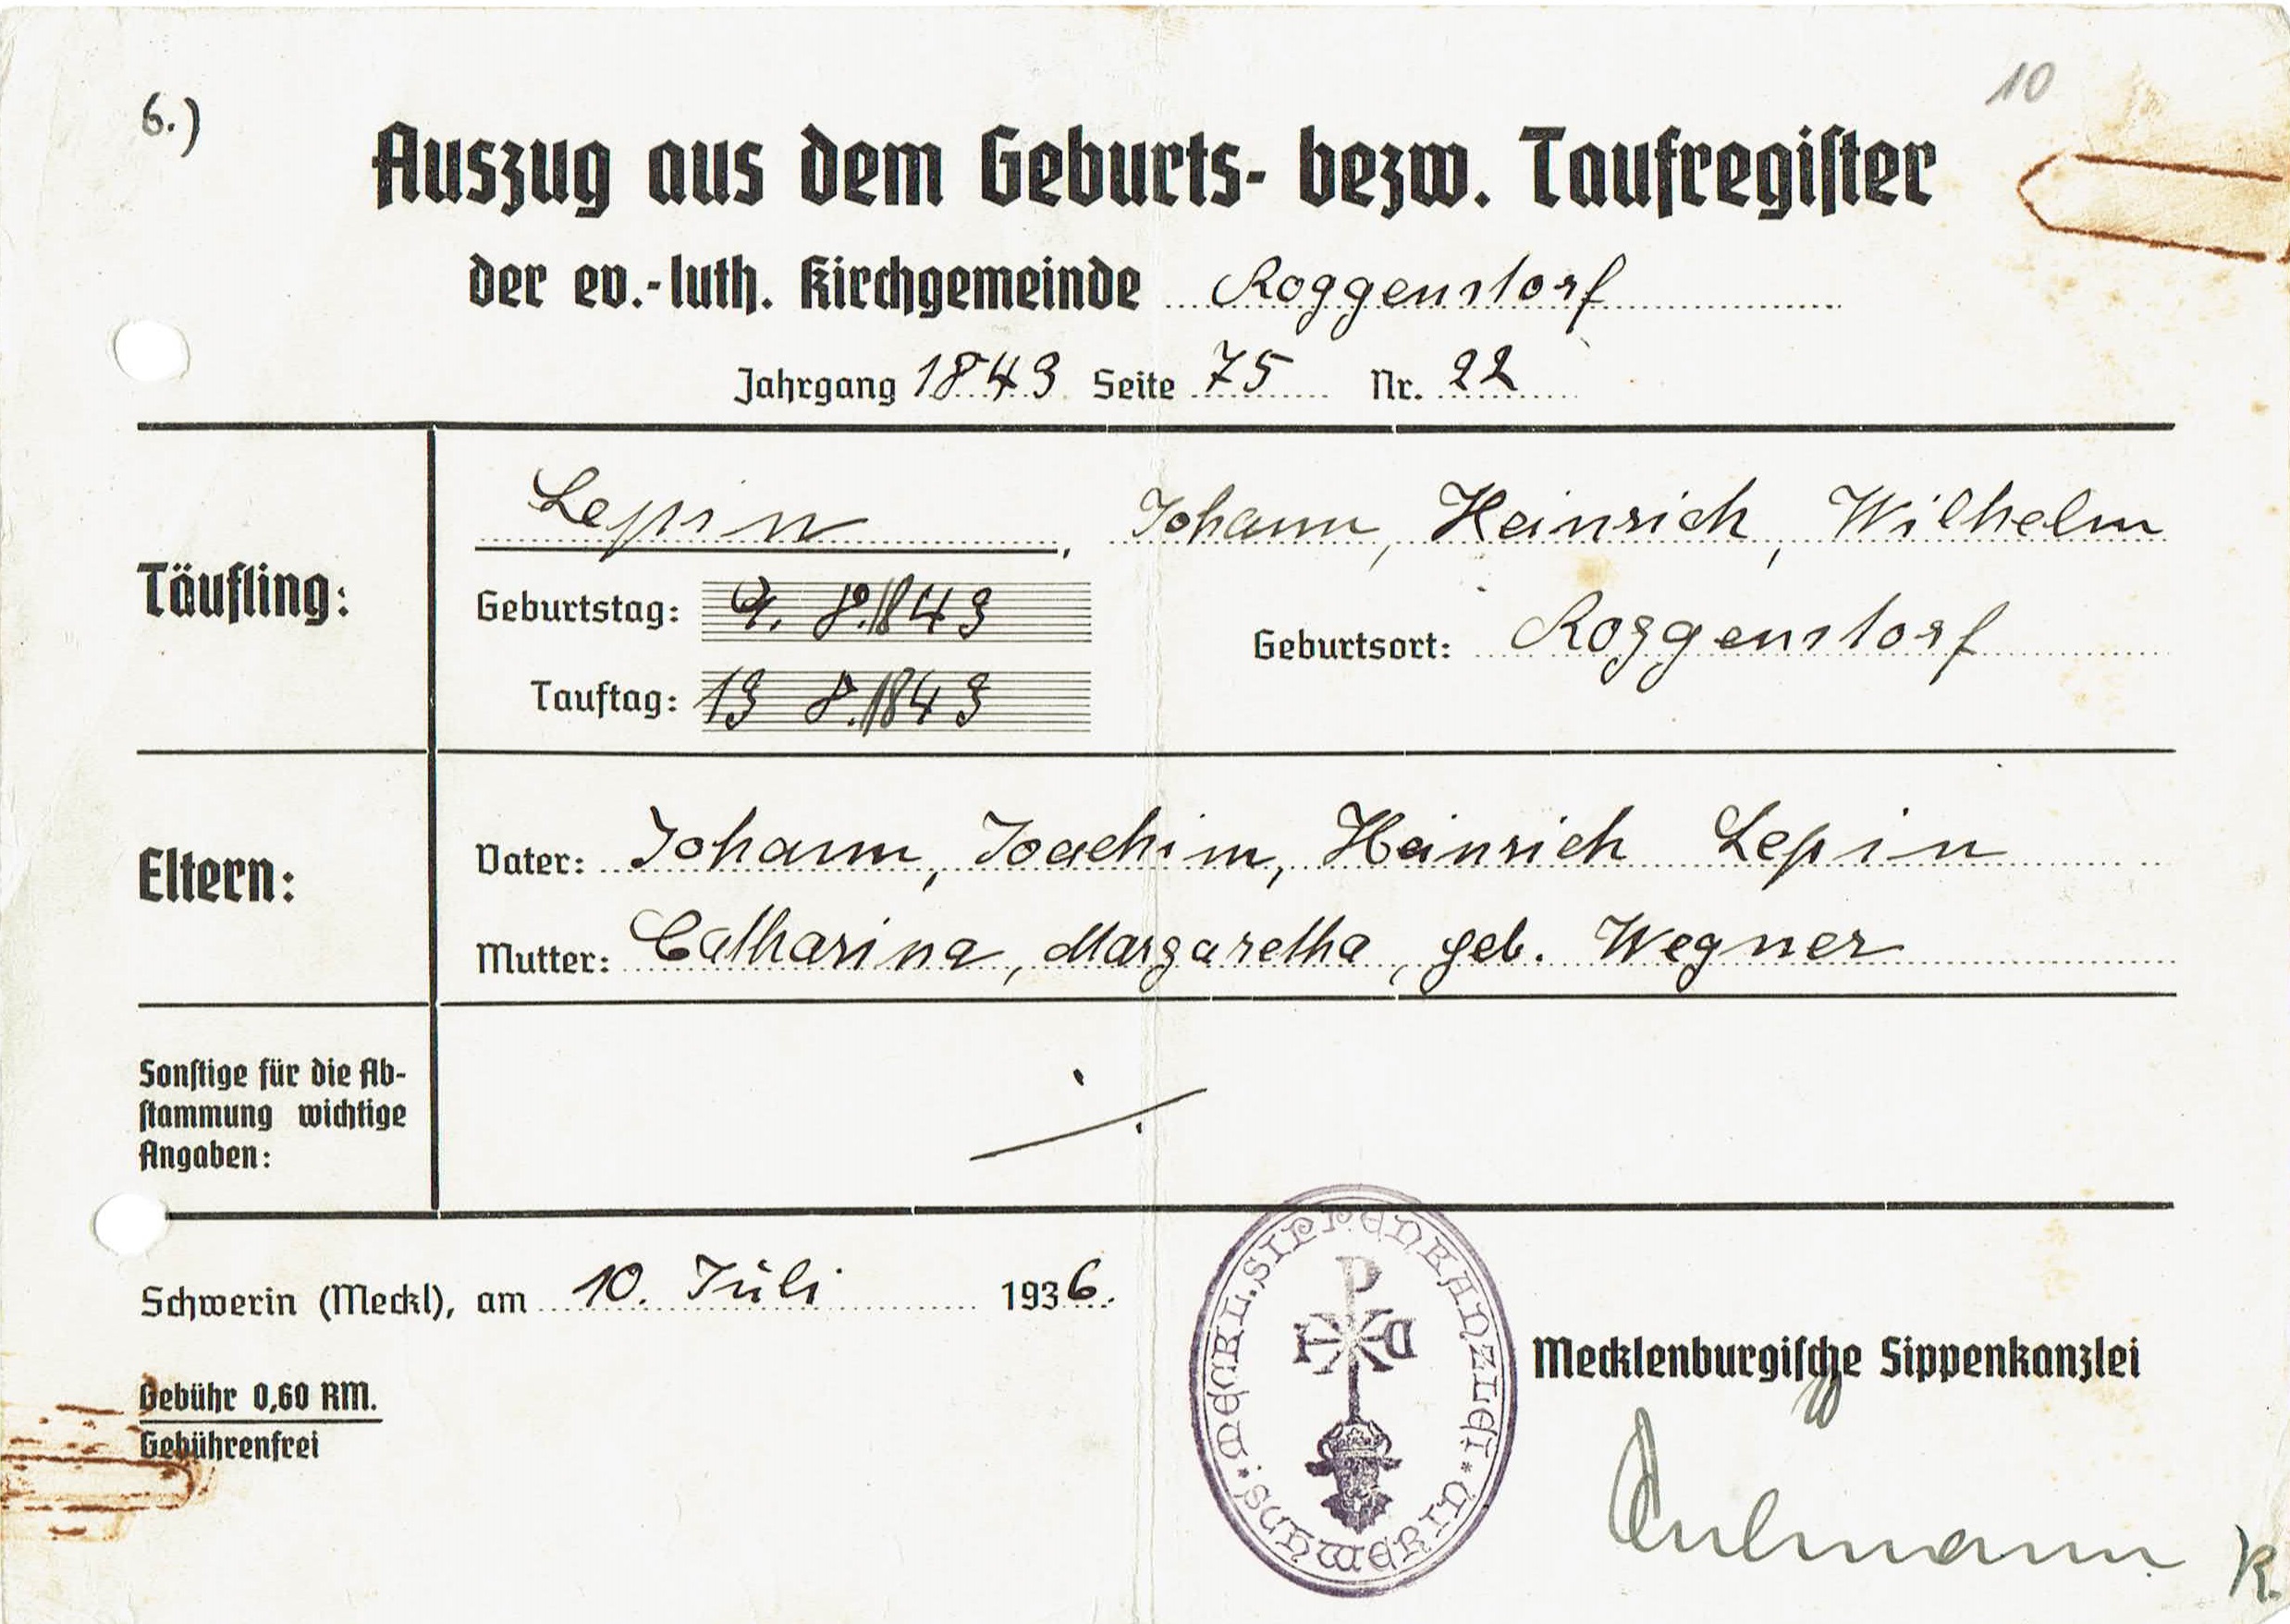 6.)
10
Auszug aus dem Geburts- bezw. Taufregiſter
der ev.-luth. Kirchgemeinde Roggenstorf
Jahrgang 1843 Seite 75 Nr. 22
Täufling:
Lepin, Johann, Heinrich, Wilhelm
Geburtstag: 9. 8. 1843
Geburtsort: Roggenstorf
Tauftag: 13 8. 1843
Eltern:
Vater: Johann, Joachim, Heinrich Lepin
Mutter: Catharina, Margaretha, geb. Wegner
Sonſtige für die Ab-
ſtammung wichtige
Angaben:
./.
Schwerin (Meckl), am 10. Juli 1936.
MECKL. SIPPENKANZLEI * SCHWERIN
Mecklenburgiſche Sippenkanzlei
Gebühr 0,60 RM.
Gebührenfrei
K.